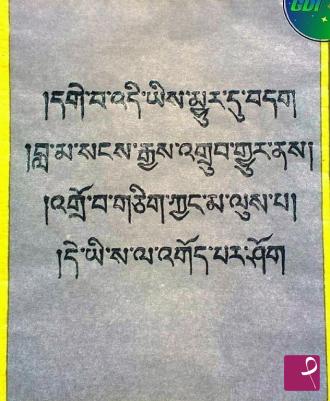 །དགེ་བ་འདི་ཡིས་མྱུར་དུ་བདག
།བླ་མ་སངས་རྒྱས་འགྲུབ་གྱུར་ནས།
།འགྲོ་བ་གཅིག་ཀྱང་མ་ལུས་པ།
།དེ་ཡི་ས་ལ་འགོད་པར་ཤོག
GDI